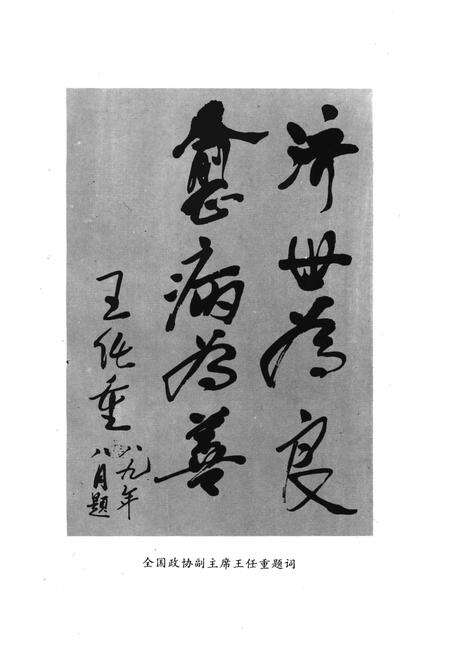 济世为良
愈病为善
王任重
八九年
八月题
全国政协副主席王任重题词